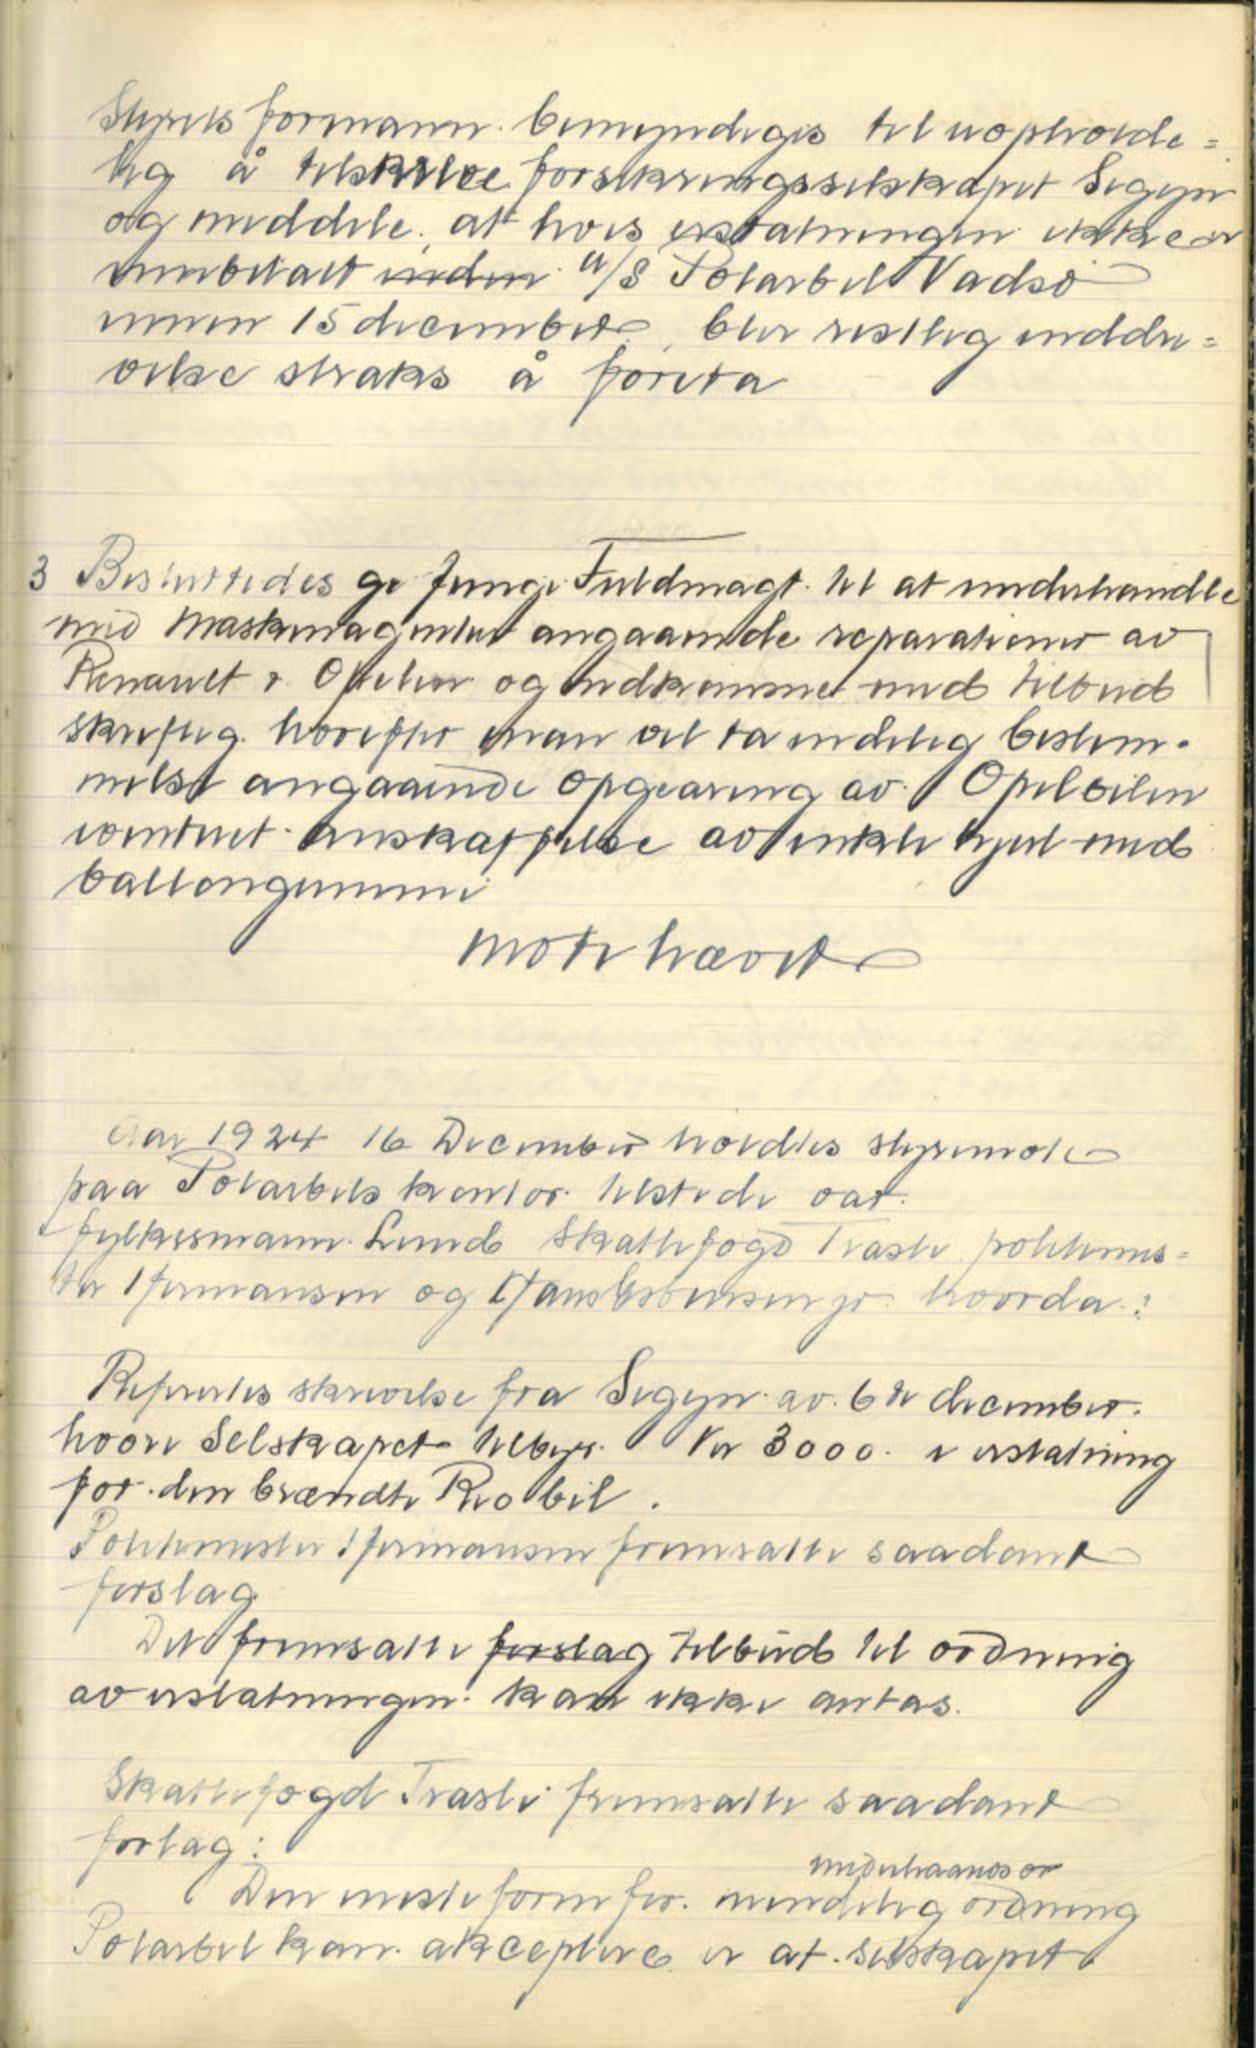 Styrets formann bemyndiges til uopholde=
lig å tilskrive forsikringsselskapet Sigyn
og meddele, at hvis erstatningen ikke er
innbetalt inden A/S Polarbil Vadsö
innen 15 december, blir rettslig inddri=
velse straks å foreta
3 Besluttedes gi Jenugi Fuldmagt til at underhandle
med Maskinagentur angaaende reparationer av
Renault & Opelen og indkomme med tilbud
skriftlig hvorefter man vil ta endelig bestem-
melse angaaende opgearing av Opelbilen
eventuelt anskaffelse av enkle hjul med
ballongummi
Möte hævet
Aar 1924 16 December holdtes styremöte
paa Polarbils kontor tilstede var
fylkesmann Lund Skattefogd Trasti politimes=
ter Hermansen og Hans Esbensen jr. hvorda:
Refertes skrivelse fra Sigyn av 6te december
hvori Selskapet tilbyr Kr 3000 i erstatning
for den brændte Reo bil.
Politimester Hermansen fremsatte saadant
forslag
Det fremsatte forslag tilbud til ordning
av erstatningen kan ikke antas.
Skattefogd Trasti fremsatte saadant
forlag:
underhaands
Den eneste form for mindelig ordning
Polarbil kan akceptere er at selskapet